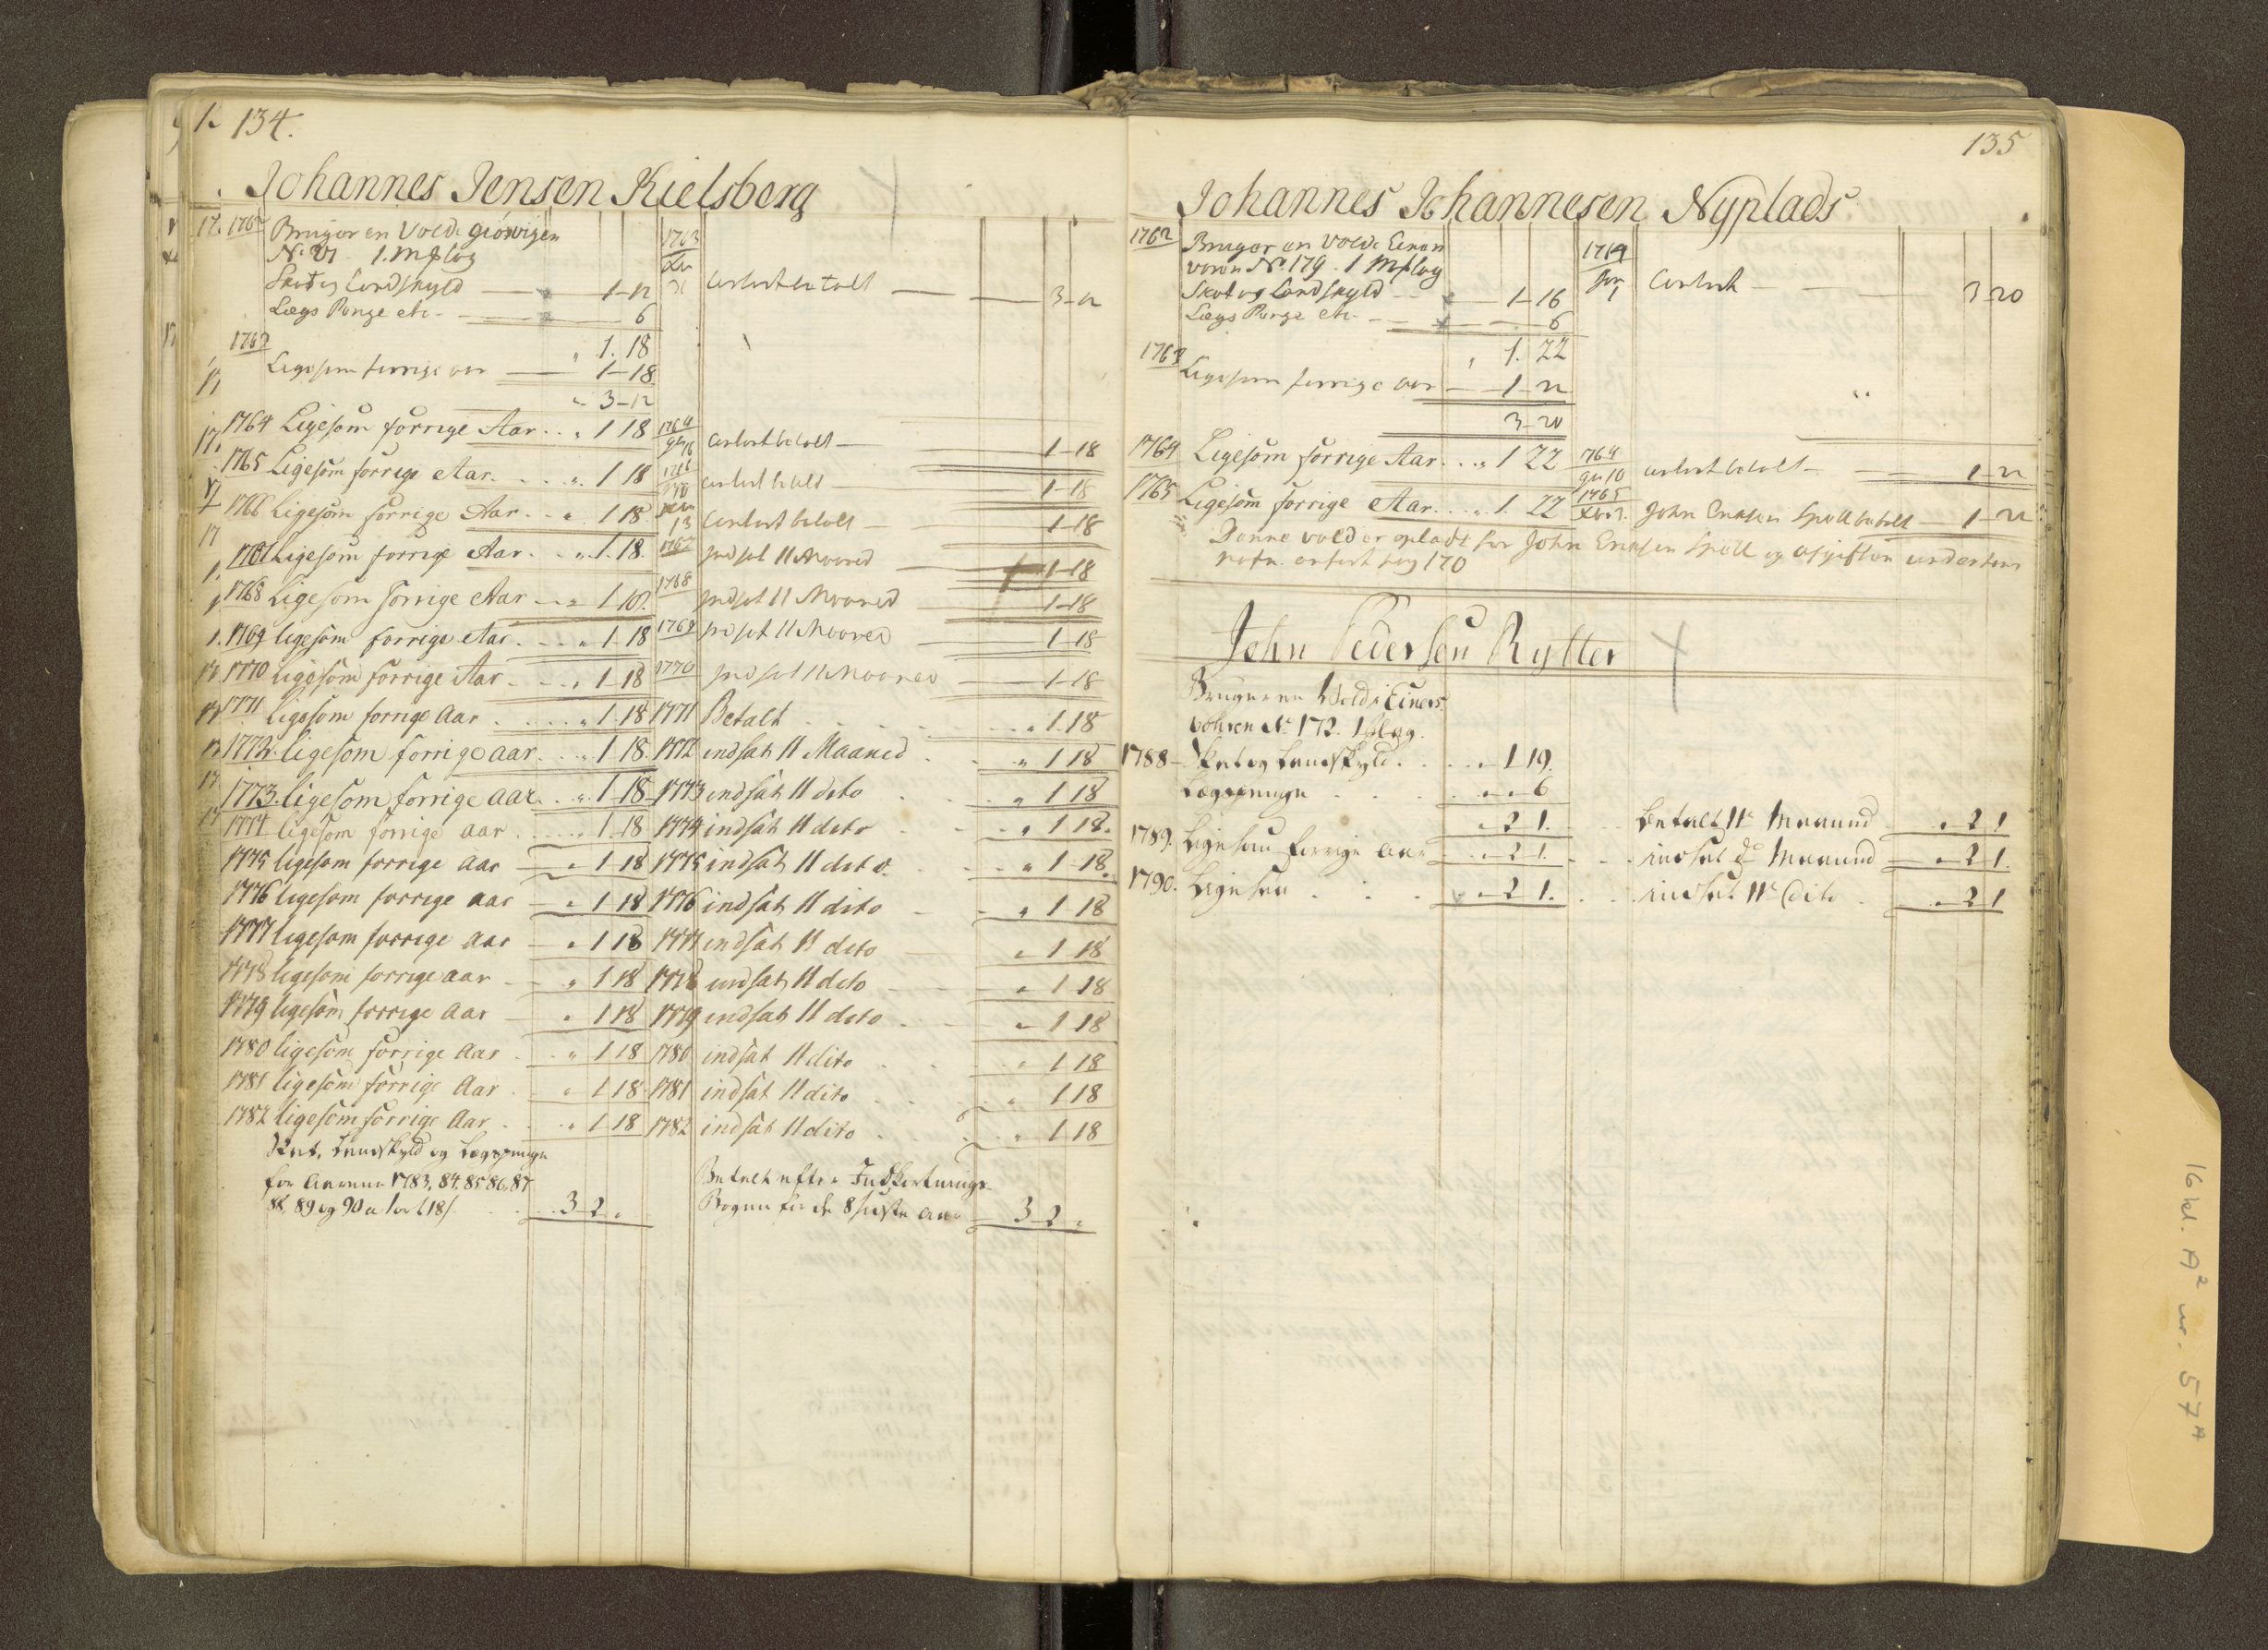 134.
Johannes Jensen Kielsberg
1762 Bruger en Vold i giösvigen
No 21 1. Mßlag
Skat og Landskyld 1-12
Lægs Penge etc. 6
" 1. 18
1763
Ligesom forrige aar 1-18
" 3-12
1764 Ligesom forrige Aar . . " 1 18
1765 Ligesom forrige Aar . . . " 1 18
1766 Ligesom forrige Aar . . " 1 18
1767 Ligesom forrige Aar . . " 1. 18
1768 Ligesom forrige Aar 1 18
1769 ligesom forrige Aar . . . " 1-18
1770 ligesom forrige Aar . . . " 1-18
1771 ligesom forrige Aar . . . . " 1-18
1772. ligesom forrige aar . . " 1 18.
1773. ligesom forrige aar . . " 1-18
1774 ligesom forrige aar . . . " 1-18
1775 ligesom forrige aar " 1-18
1776 ligesom forrige aar " 1 18
1777 ligesom forrige aar " 1 18
1778 ligesom forrige aar " 1 18
1779 ligesom forrige aar " 1 18
1780 ligesom forrige Aar . . " 1 18
1781 ligesom forrige Aar " 1 18
1782 ligesom forrige Aar . . " 1 18
Skat, Landskyld og Lægspenge
for Aarene 1783, 84. 85 86, 87
88, 89 og 90 a 1 ort 18 s . . 3 2 "
1763
Xbr
31 contant betalt 3-12
1764
contant betalt 1-18
contant betalt 1-18
Xbr
13 Contant betalt 1-18
1767 indsat 11 Maaned 1-18
1768 indsat 11 Maaned 1-18
1769 indsat 11 Maaned 1-18
1770 indsat 11 Maaned 1-18
1771 Betalt . . . . " 1-18
1772 indsat 11 Maaned . . " 1 18
1773 indsat 11 dito . . " 1 18
1774 indsat 11 dito . . " 1 18.
1775 indsat 11 dito. . . " 1-18.
1776 indsat 11 dito " 1-18
1777 indsat 11 dito " 1-18
1778 indsat 11 dito " 1-18
1779 indsat 11 dito . " 1 18
1780 indsat 11 dito . . " 1 18
1781 indsat 11 dito . . " 1 18
1782 indsat 11 dito . . " 1 18
Betalt efter Indkortnings-
Bogen for de 8 sidste Aar 3 2 "
135
Johannes Johannesen Nyplads
1762 Bruger en Vold i Einers
voren No. 179. 1 Mßlag
Skat og Landskyld 1-16
Lægs Penge etc. 6
" 1. 22
1763 Ligesom forrige aar 1-22
3-20
1764 Ligesom forrige Aar . . . " 1 22
1765 Ligesom forrige Aar . . . " 1. 22
1764
Jan
1 Contant 3 20
1764
contant betalt 1-22
1765
John Ericksen Spell betalt 1-22
Denne vold er opladt for John Ericksen Spell og afgiften under hans
nafn anført pag 170
John Pedersen Rytter
Bruger en Vold i Einers
vohren No 172. 1 ßlag.
1788 Skat og Landskyld. . . " 1 19.
Lægspenge . . . " " 6
" 2 1. Betalt 11te Maaned " 2 1
1789. Ligesom forrige Aar " 2 1. . . indsat do Maaned " 2 1.
1790. Ligesom . . . " 2 1. . . indsat 11te dito . " 2 1
16 kl. A² nr. 57 A